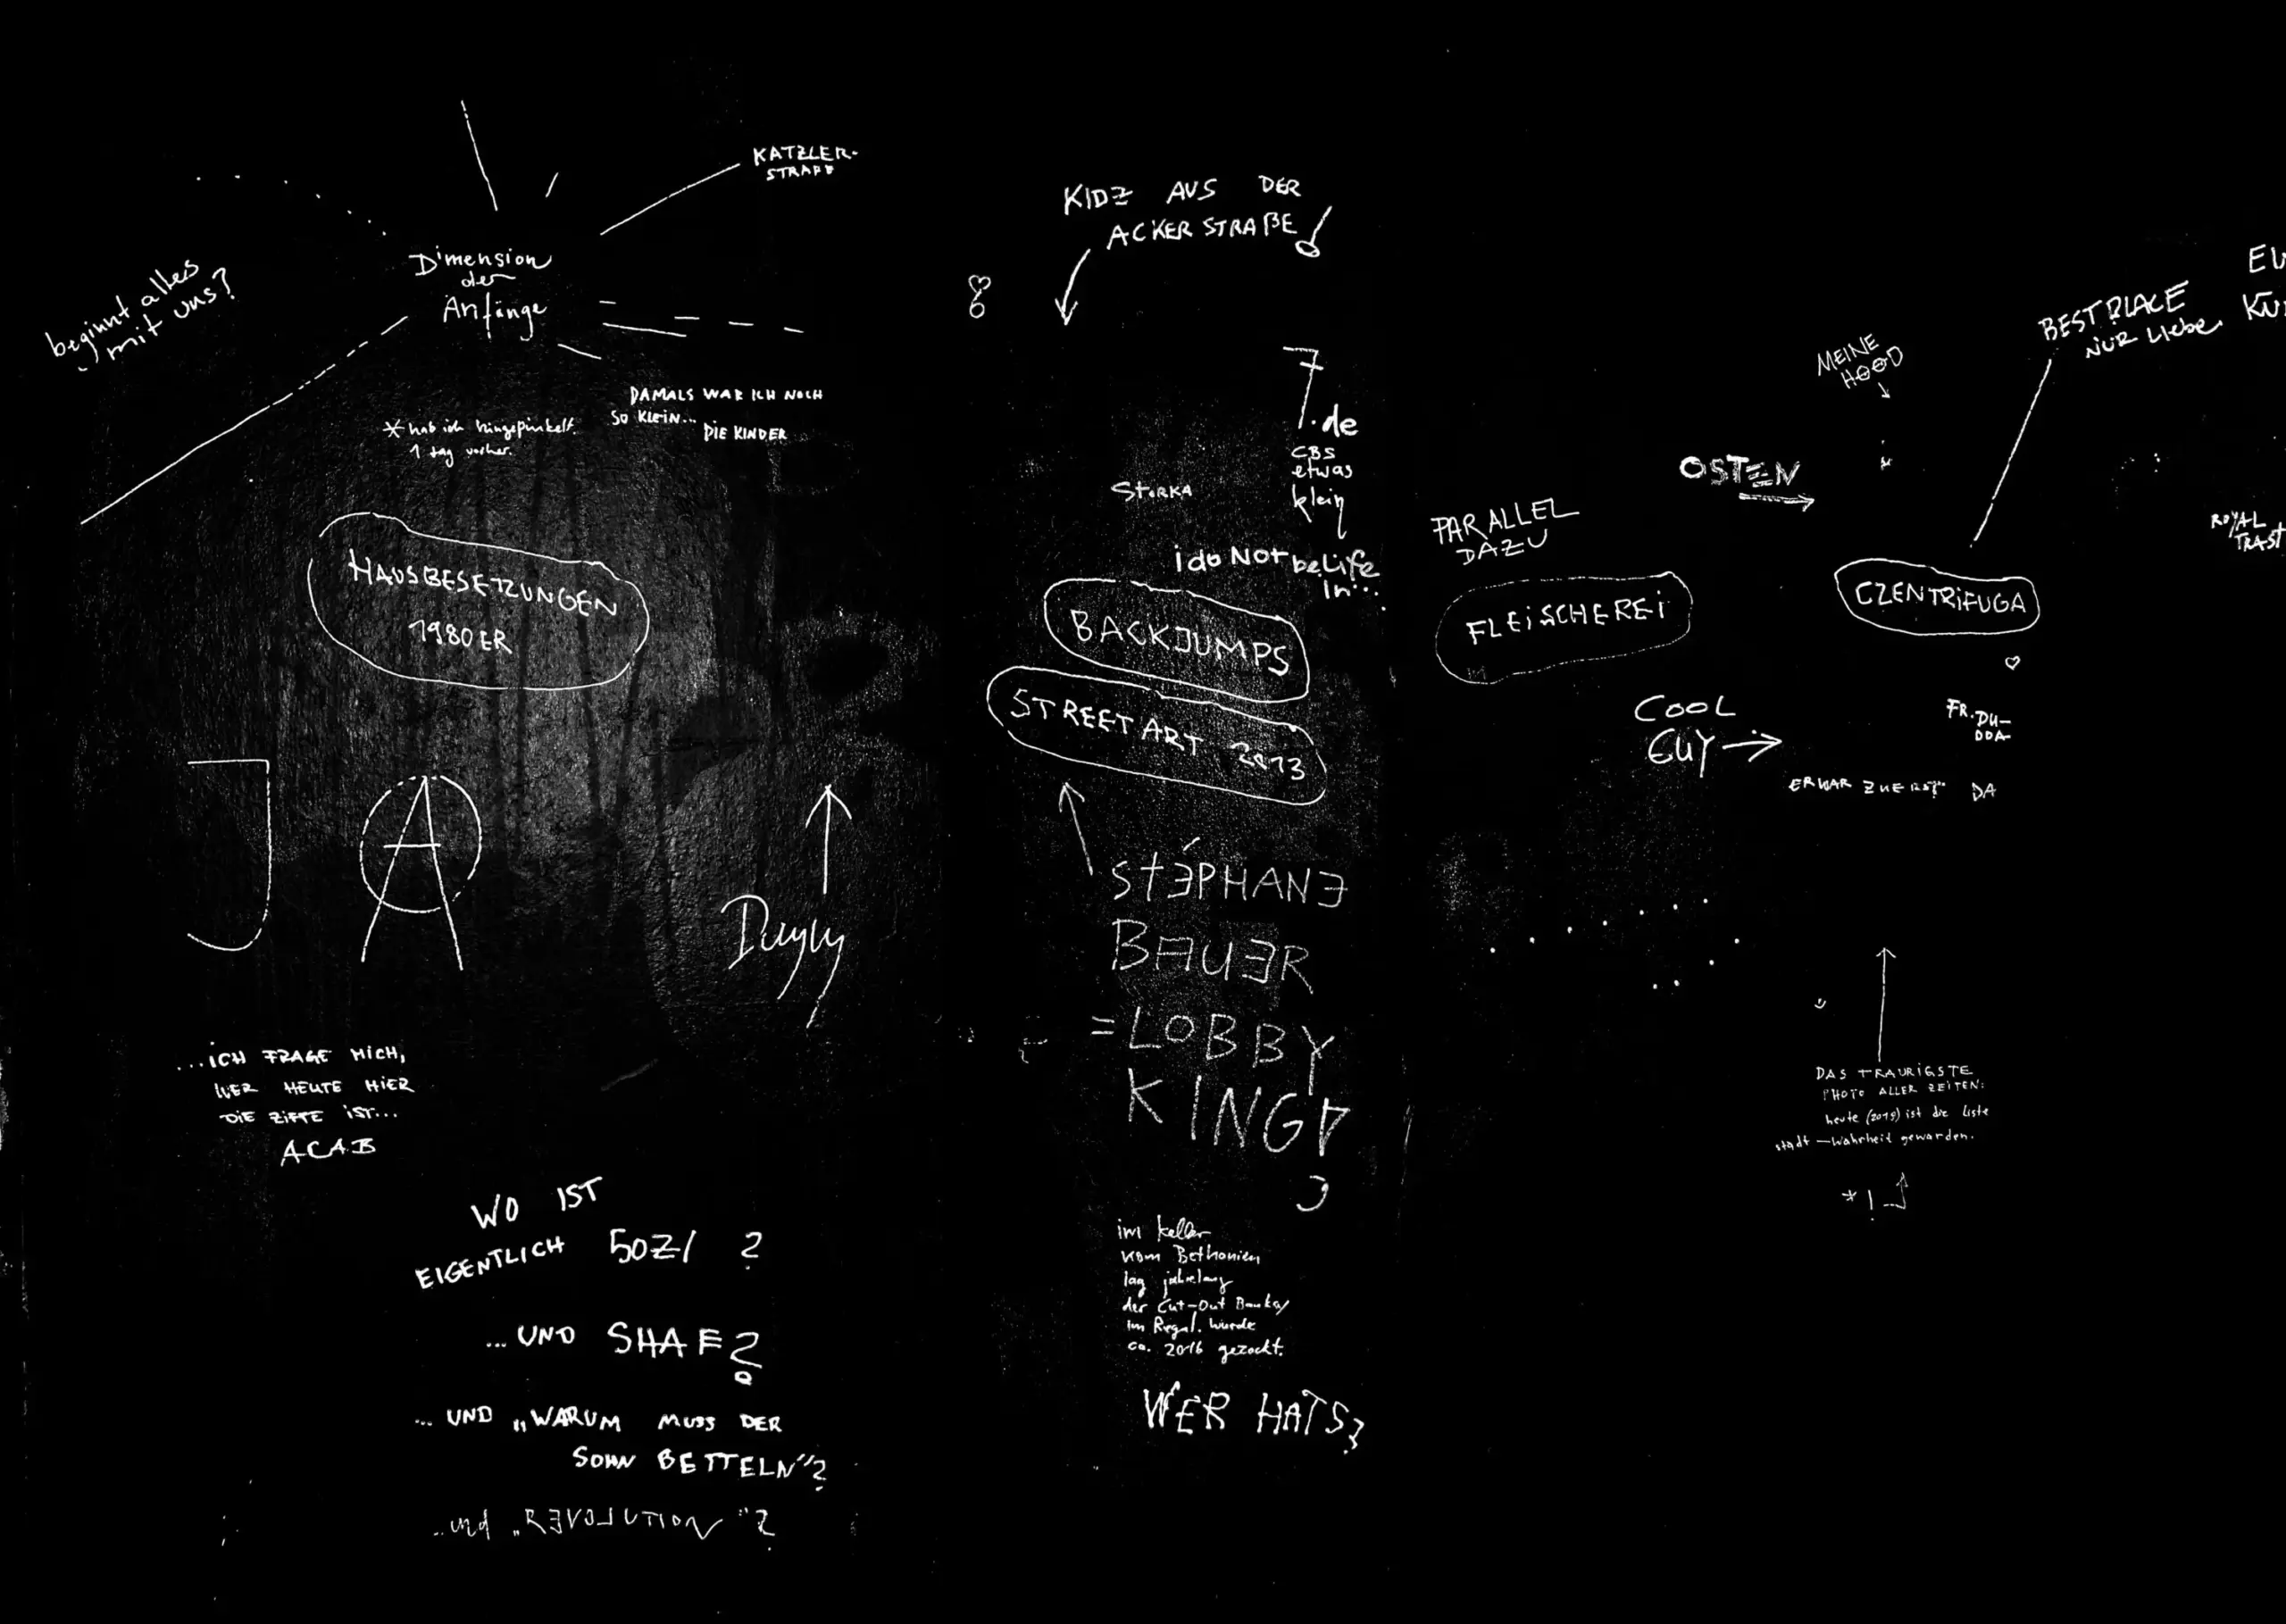 KATZLER-
STRAßE
beginnt alles
mit uns?
Dimension
der
Anfänge
* hab ich hingepinkelt.
1 tag vorher.
DAMALS WAR ICH NOCH
SO KLEIN...
DIE KINDER
HAUSBESETZUNGEN
1980ER
JA
...ICH FRAGE MICH,
WER HEUTE HIER
DIE ZIFFE IST...
ACAB
WO IST
EIGENTLICH SOZI ?
...UND SHAF?
... UND „WARUM MUSS DER
SOHN BETTELN"?
...und „REVOLUTION"?
KIDZ AUS DER
ACKERSTRAßE!
7.de
CBS
etwas
klein
i do NOt beLife
In...
BACKJUMPS
STREETART 2013
StéPHANE
BAUER
= LOBBY
KING
im Keller
vom Bethanien
lag jahrelang
der Cut-Out Banksy
im Regal. wurde
ca. 2016 gezockt.
WER HATS?
PARALLEL
DAZU
FLEiSCHEREi
OSTEN
MEINE
HOOD
BEST PLACE
NUR LIEBE
CZENTRIFUGA
FR. DU-
DDA
COOL
GUY
ER WAR ZUERST DA
DAS TRAURIGSTE
PHOTO ALLER ZEITEN:
heute (2019) ist die Liste
stadt – Wahrheit geworden.
* !
ROYAL
TRAST